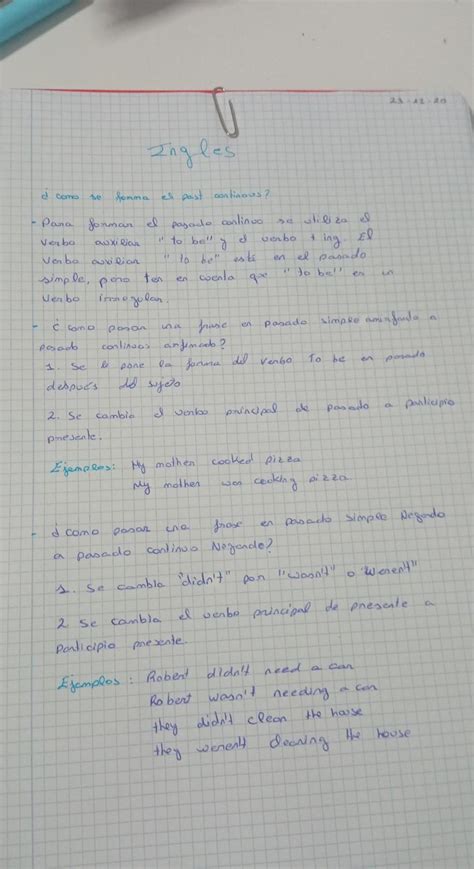 23-12-20
Ingles
¿ como se forma es past continuous?
- Para formar el pasado continuo se utiliza el
verbo auxiliar "to be" y el verbo + ing. El
verbo auxiliar "to be" está en el pasado
simple, pero ten en cuenta que "to be" es un
verbo irregular.
- ¿ como pasar una frase en pasado simple
pasado continuos afirmado?
1. Se le pone la forma del verbo To be en pasado
después del sujeto
2. Se cambia el verbo principal de pasado a participio
presente.
Ejemplos: My mother cooked pizza
My mother was cooking pizza.
- ¿ como pasar una frase en pasado simple Negando
a pasado continuo Negando?
1. Se cambia "didn't" por "wasn't" o "weren't"
2 Se cambia el verbo principal de presente a
participio presente.
Ejemplos: Robert didn't need a car
Robert wasn't needing a car
they didn't clean the house
they weren't cleaning the house